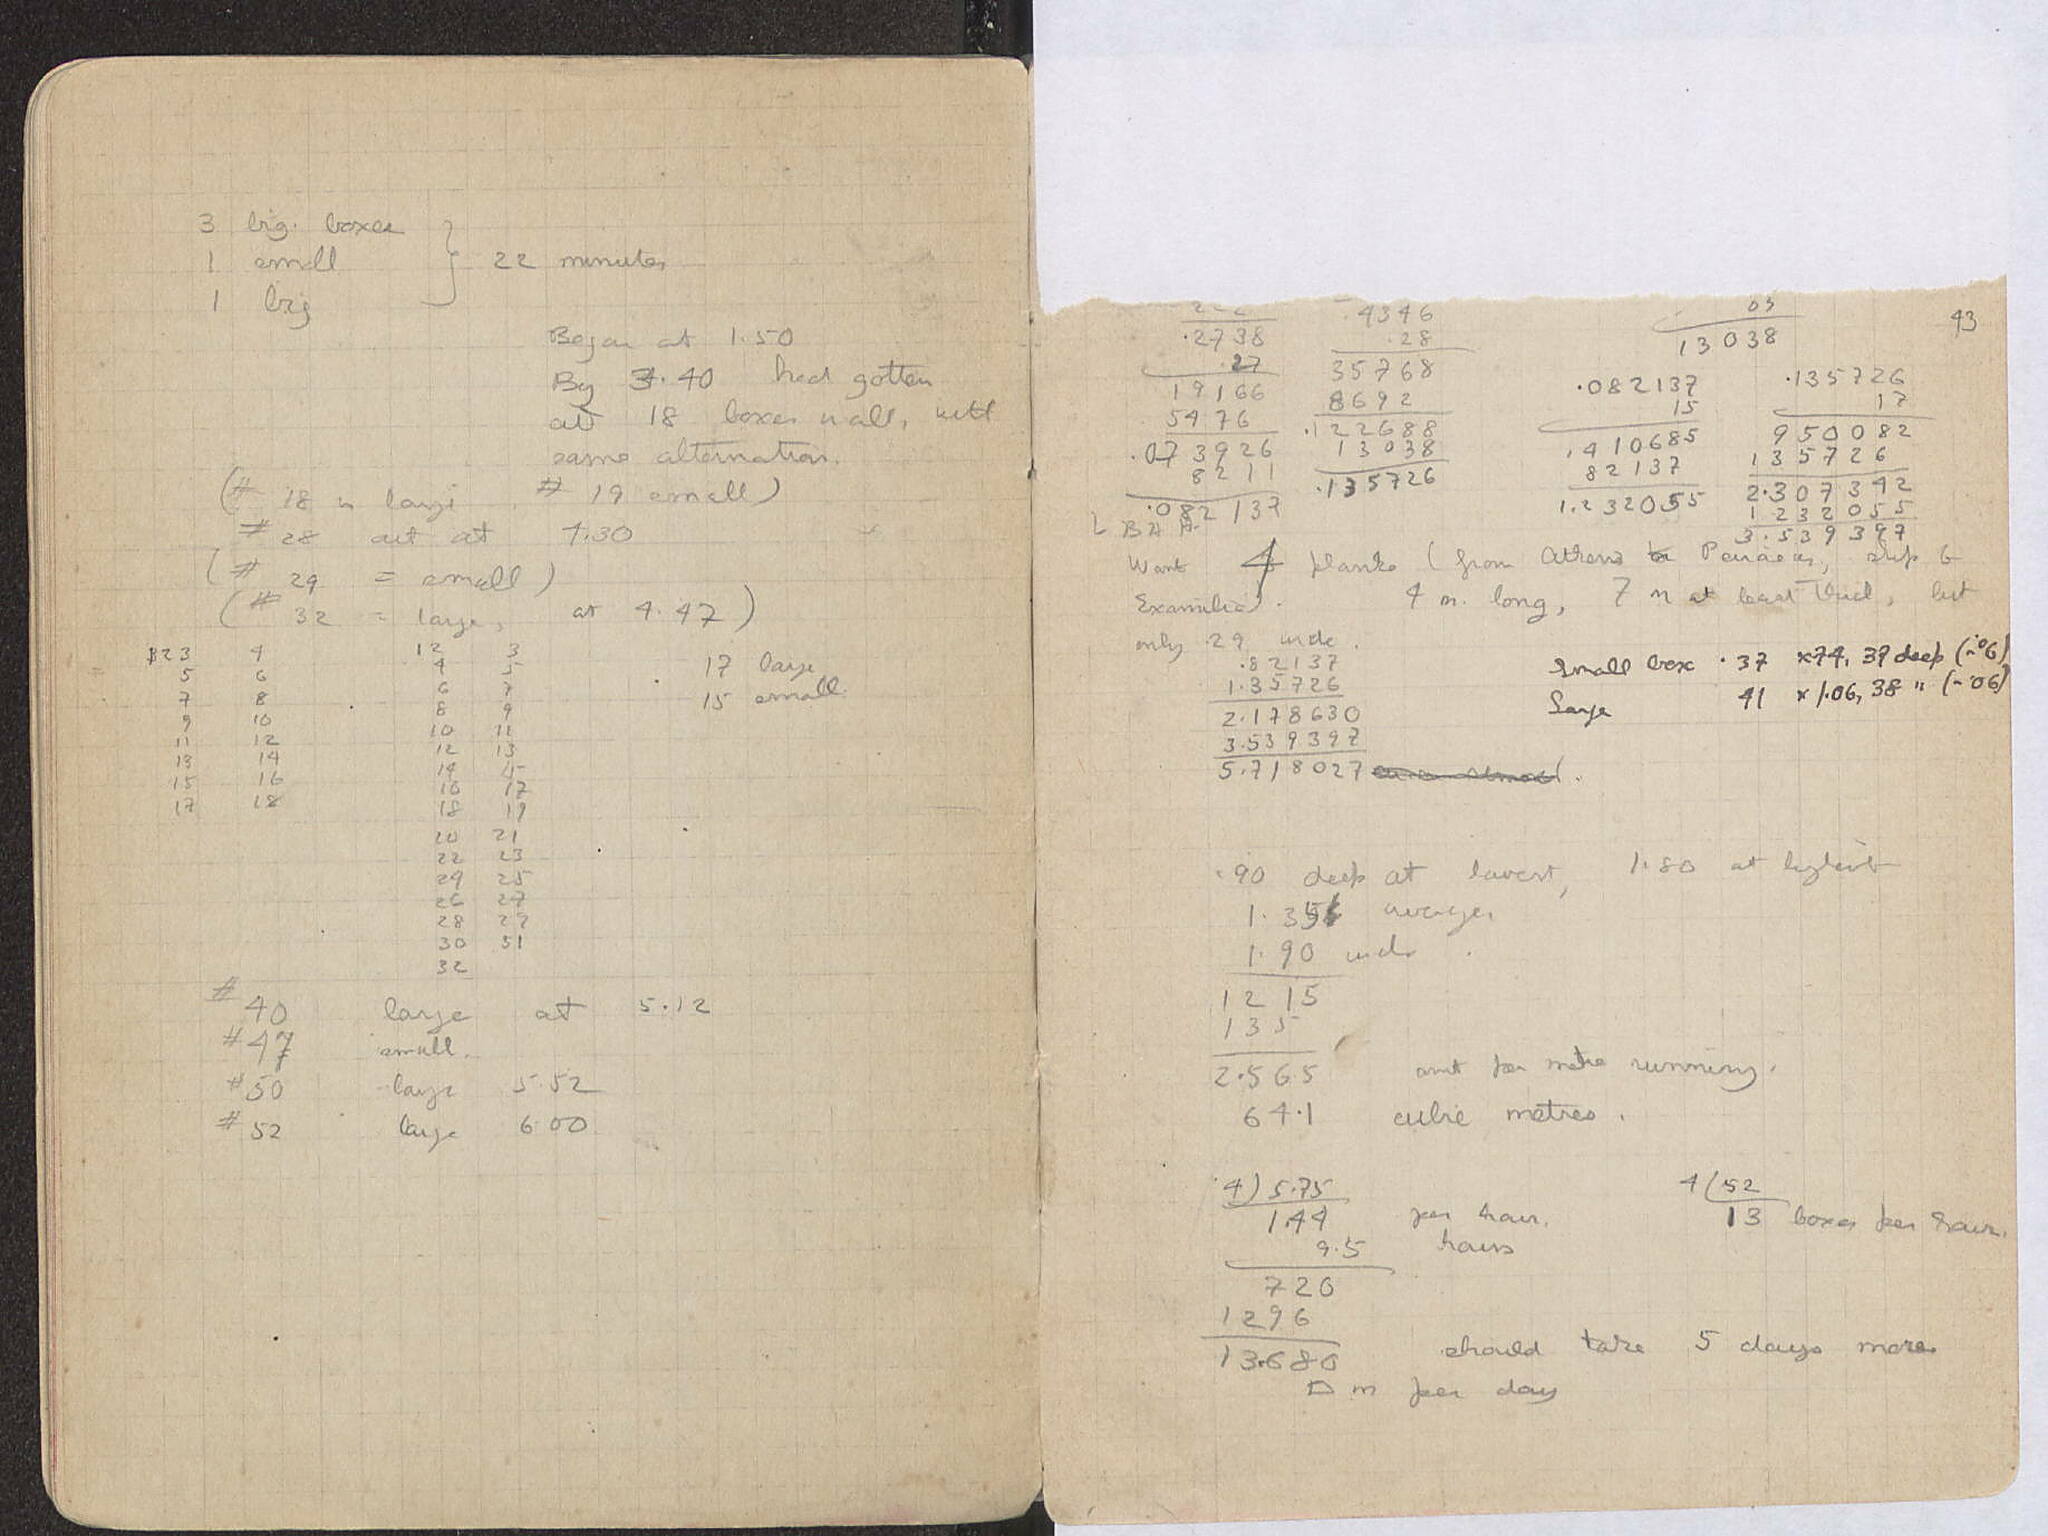 3 big boxes
1 small } 22 minutes
1 big
Began at 1.50
By 3.40 had gotten
out 18 boxes in all, with
same alternation.
(# 18 is large # 19 small)
# 28 out at 4.30
(# 29 = small)
(# 32 = large, at 4.47)
123 4 12 3
5 6 4 5
7 8 6 7
9 10 8 9
11 12 10 11
13 14 12 13
15 16 14 15
17 18 16 17
18 19
20 21
22 23
24 25
26 27
28 29
30 31
32
17 large
15 small
# 40 large at 5.12
# 47 small.
# 50 large 5.52
# 52 large 6.00
43
222
.2738
.27
19166
5476
.073926
8211
.082137
.4346
.28
35768
8692
.122688
13038
.135726
03
13038
.082137
15
.410685
82137
1.232055
.135726
17
950082
135726
2.307342
1 232055
3.539397
Want 4 planks (from Athens to Peiraeus, ship to
Examilia). 4 m. long, 7 m at least thick, but
only .29 wide.
.82137
1.35726
2.178630
3.539397
5.718027
Small box .37 x 74, 39 deep (-.06)
Large 41 x 1.06, 38 " (-.06)
.90 deep at lowest, 1.80 at highest
1.35 average
1.90 wide.
1215
135
2.565 amt per metre running.
64.1 cubic metres.
4) 5.75
1.44 per hour.
9.5 hours
720
1296
13.680 should take 5 days more
□ m per day
4 (52
13 boxes per hour.